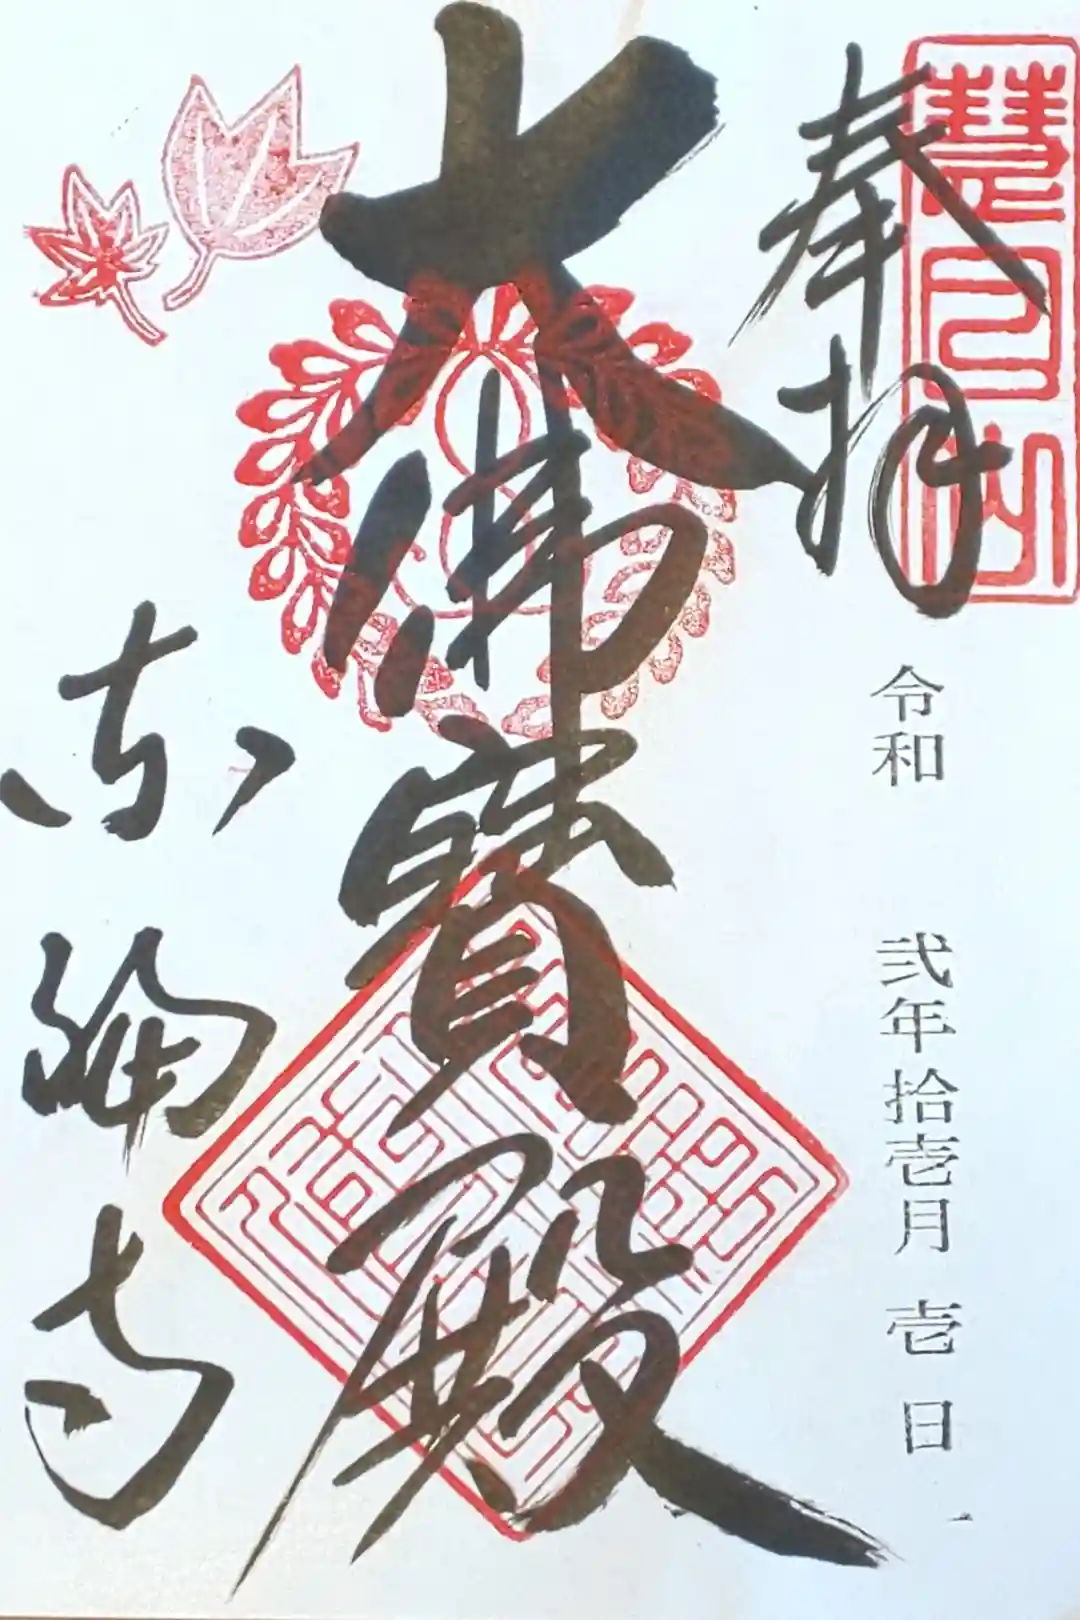 奉拝
慧日山
令和 弐年拾壱月 壱 日
大佛寶殿
東福寺